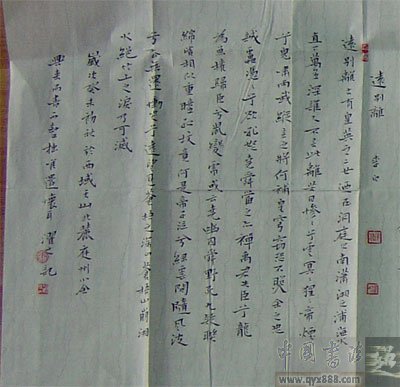 遠別離 李白
遠別離古有皇英之二女迺在洞庭之南瀟湘之浦海水
直下萬里深誰人不言此離苦日慘慘兮雲冥冥猩猩啼煙
兮鬼嘯雨我縱言之將何補皇穹竊恐不照余之忠
誠雷憑憑兮欲吼怒堯舜當之亦禪禹君失臣兮龍
為魚權歸臣兮鼠變虎或云堯幽囚舜野死九疑聯
綿皆相似重瞳孤墳竟何是帝子泣兮綠雲間隨風波
兮去無還慟哭兮遠望見蒼梧之深山蒼梧山崩湘
水絕竹上之淚乃可滅
歲次癸未初秋於西域天山北麓庭州小舍
興去而書不計拙唯遣懷耳 記
中国書法
www.qyx888.com